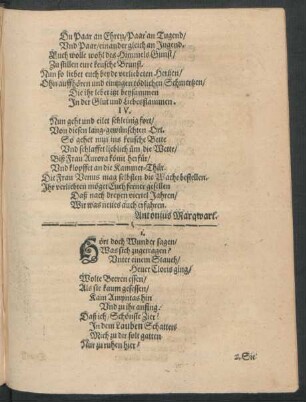 Du Paar an Ehren/Paar an Tugend/
Und Paar/einander gleich an Jugend.
Euch wolle wohl des Himmels Gunst/
Zu stillen eure keusche Brunst.
Nun so liebet euch beyde verliebeten Hertzen/
Ohn auffhören und eintzigen tödlichen Schmertzen/
Die ihr lebet itzt beysammen
In der Glut und Liebesflammen.
IV.
Nun geht und eilet schleunig fort/
Von diesen lang-gewünschten Ort.
So gehet nun ins keusche Bette
Und schlaffet lieblich üm die Wette/
Biß Frau Aurora kömt herfür/
Und klopffet an die Kammer-Thür.
Die Frau Venus mag selbsten die Wache bestellen.
Ihr verliebten möget Euch ferner gesellen
Daß nach dreyen vierel Jahren/
Wir was neues auch erfahren.
Antonius Marqwart.
1.
Hört doch Wunder sagen/
Was sich zugetragen?
Unter einem Strauch/
Heuer Cloris ging/
Wolte Beeren essen/
Als sie kaum gesessen/
Kam Amyntas hin
Und zu ihr anfing.
Daß ich/Schönste Zier!
In dem Lauben Schatten
Mich zu dir solt gatten
Nur zu ruhen hier/
2. Sie